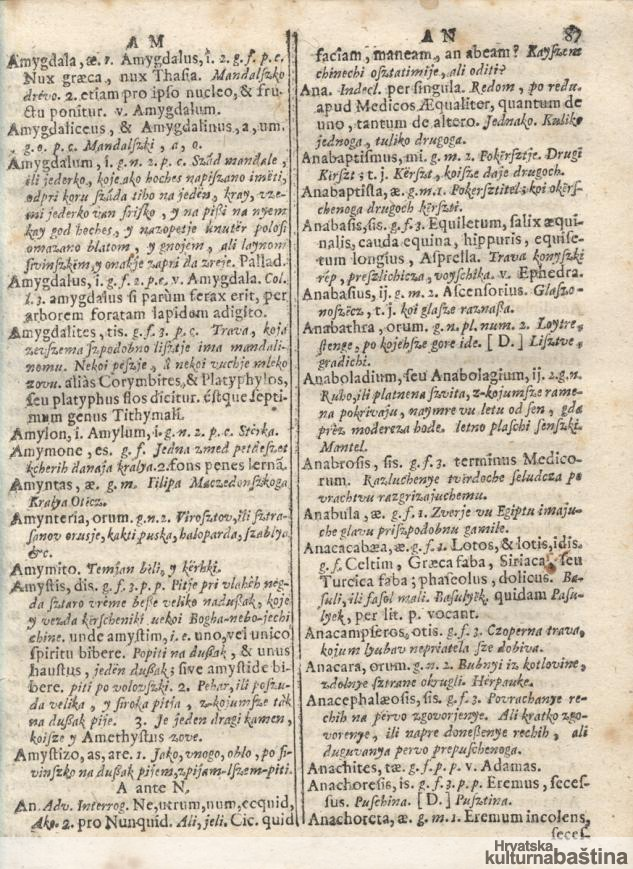 A M
Amygdala, æ. 1. Amygdalus, i. 2. g. f. p. c.
Nux græca, nux Thasia. Mandalszko
drévo. 2. etiam pro ipso nucleo, & fru-
ctu ponitur. v. Amygdalum.
Amygdaliceus, & Amygdalinus, a, um.
g. o. p. c. Mandalszki, a, o.
Amygdalum, i. g. n. 2. p. c. Szád mandale,
ili jederko, koje ako hoches napiszano iméti,
odpri koru száda tiho na jedén, kray, vze-
mi jederko van frisko, y na piši na nyem
kay god hoches, y nazopetje unutér polosi
omazano blatom, y gnojem, ali laynom
sivinszkim, y onakje zapri da zreje. Pallad.
Amygdalus, i. g. f. 2. p. c. v. Amygdala. Col.
l. 3. amygdalus si parùm ferax erit, per
arborem foratam lapidem adigito.
Amygdalites, tis. g. f. 3. p. c. Trava, koja
zevszema szpodobno lisztje ima mandali-
nomu. Nekoi peszje, a nekoi vuchje mleko
zovu. aliàs Corymbites, & Platyphylos,
seu platyphus flos dicitur. éstque septi-
mum genus Tithymali.
Amylon, i. Amylum, i. g. n. 2. p. c. Stérka.
Amymone, es. g. f. Jedna zmed petdeszet
kcherih danaja kralya. 2. fons penes lernã.
Amyntas, æ. g. m. Filipa Maczedonszkoga
Kralya Otécz.
Amynteria, orum. g. n. 2. Virosztov, ili sztra-
sanov orusje, kakti puska, haloparda, szablya
&c.
Amymito. Temjan béli, y kérhki.
Amystis, dis. g. f. 3. p. p. Pitje pri vlahéh neg-
da sztaro vréme beße veliko nadußak, koje
y vezda kérscheniki uekoi Bogha-nebo-jechi
chine. unde amystim, i. e. uno, vel unico
spiritu bibere. Popiti na dußak, & unus
haustus, jedén dußak; sive amystide bi-
bere. piti po volovszki. 2. Pehar, ili poszu-
da velika, y siroka pitja, z-kojumsze tàk
na dußak pije. 3. Je jeden dragi kamen,
koisze y Amethystus zove.
Amystizo, as, are. 1. Jako, vnogo, oblo, po si-
vinszko na dußak pijem, zpijam-lszem-piti.
A ante N.
An. Adv. Interrog. Ne, utrum, num, ecquid,
Ako. 2. pro Nunquid. Ali, jeli. Cic. quid
A N 87
faciam, maneam, an abeam? Kayszem
chinechi osztatimije, ali oditi?
Ana. Indecl. per singula. Redom, po redu.
apud Medicos Æqualiter, quantum de
uno, tantum de altero. Jednako. Kuliko
jednoga, tuliko drugoga.
Anabaptismus, mi. g. m. 2. Pokérsztje. Drugi
Kirszt; t. j. Kérszt, koisze daje drugoch.
Anabaptista, æ. g. m. 1. Pokersztitel; koi okérs-
chenoga drugoch kérszti.
Anabasis, sis. g. f. 3. Equiletum, salix æqui-
nalis, cauda equina, hippuris, equise-
tum longius, Asprella. Trava konyszki
rép, preszlichicza, voyschika. v. Ephedra.
Anabasius, ij. g. m. 2. Ascensorius. Glaszo-
noszécz, t. j. koi glasze raznaßa.
Anabathra, orum. g. n. pl. num. 2. Loytre,
stenge, po kojehsze gore ide. [ D. ] Lisztve,
gradichi.
Anaboladium, seu Anabolagium, ij. 2. g. n.
Ruho, ili platnena szvita, z-kojumsze rame-
na pokrivaju, naymre vu letu od sen, gda
préz modercza hode. letno plaschi senszki.
Mantel.
Anabrosis, sis. g. f. 3. terminus Medico-
rum. Razluchenye tverdoche seludcza po
vrachtvu razgrizajuchemu.
Anabula, æ. g. f. 1. Zverje vu Egiptu imaju-
che glavu priszpodobnu gamile.
Anacacabæa, æ. g. f. 1. Lotos, & lotis, idis.
g. f. Celtim, Græca faba, Siriaca, seu
Turcica faba; phaseolus, dolicus. Ba-
suli, ili fasol mali. Basulyék. quidam Pasu-
lyek, per lit. p. vocant.
Anacampseros, otis. g. f. 3. Czoperna trava,
kojum lyubav nepriatela sze dobiva.
Anacara, orum. g. n. 2. Bubnyi iz kotlovine,
zdolnye sztrane okrugli. Hérpauke.
Anacephalæosis, sis. g. f. 3. Povrachanye re-
chih na pérvo zgovorjenye. Ali kratko zgo-
vorenye, ili napre doneßenye rechih, ali
duguvanya pervo prepuschenoga.
Anachites, tæ. g. f. p. p. v. Adamas.
Anachoresis, is. g. f. 3. p. p. Eremus, seces-
sus. Puschina. [ D. ] Pusztina.
Anachoreta, æ. g. m. 1. Eremum incolens,
seces-
Hrvatska
kulturnabaština